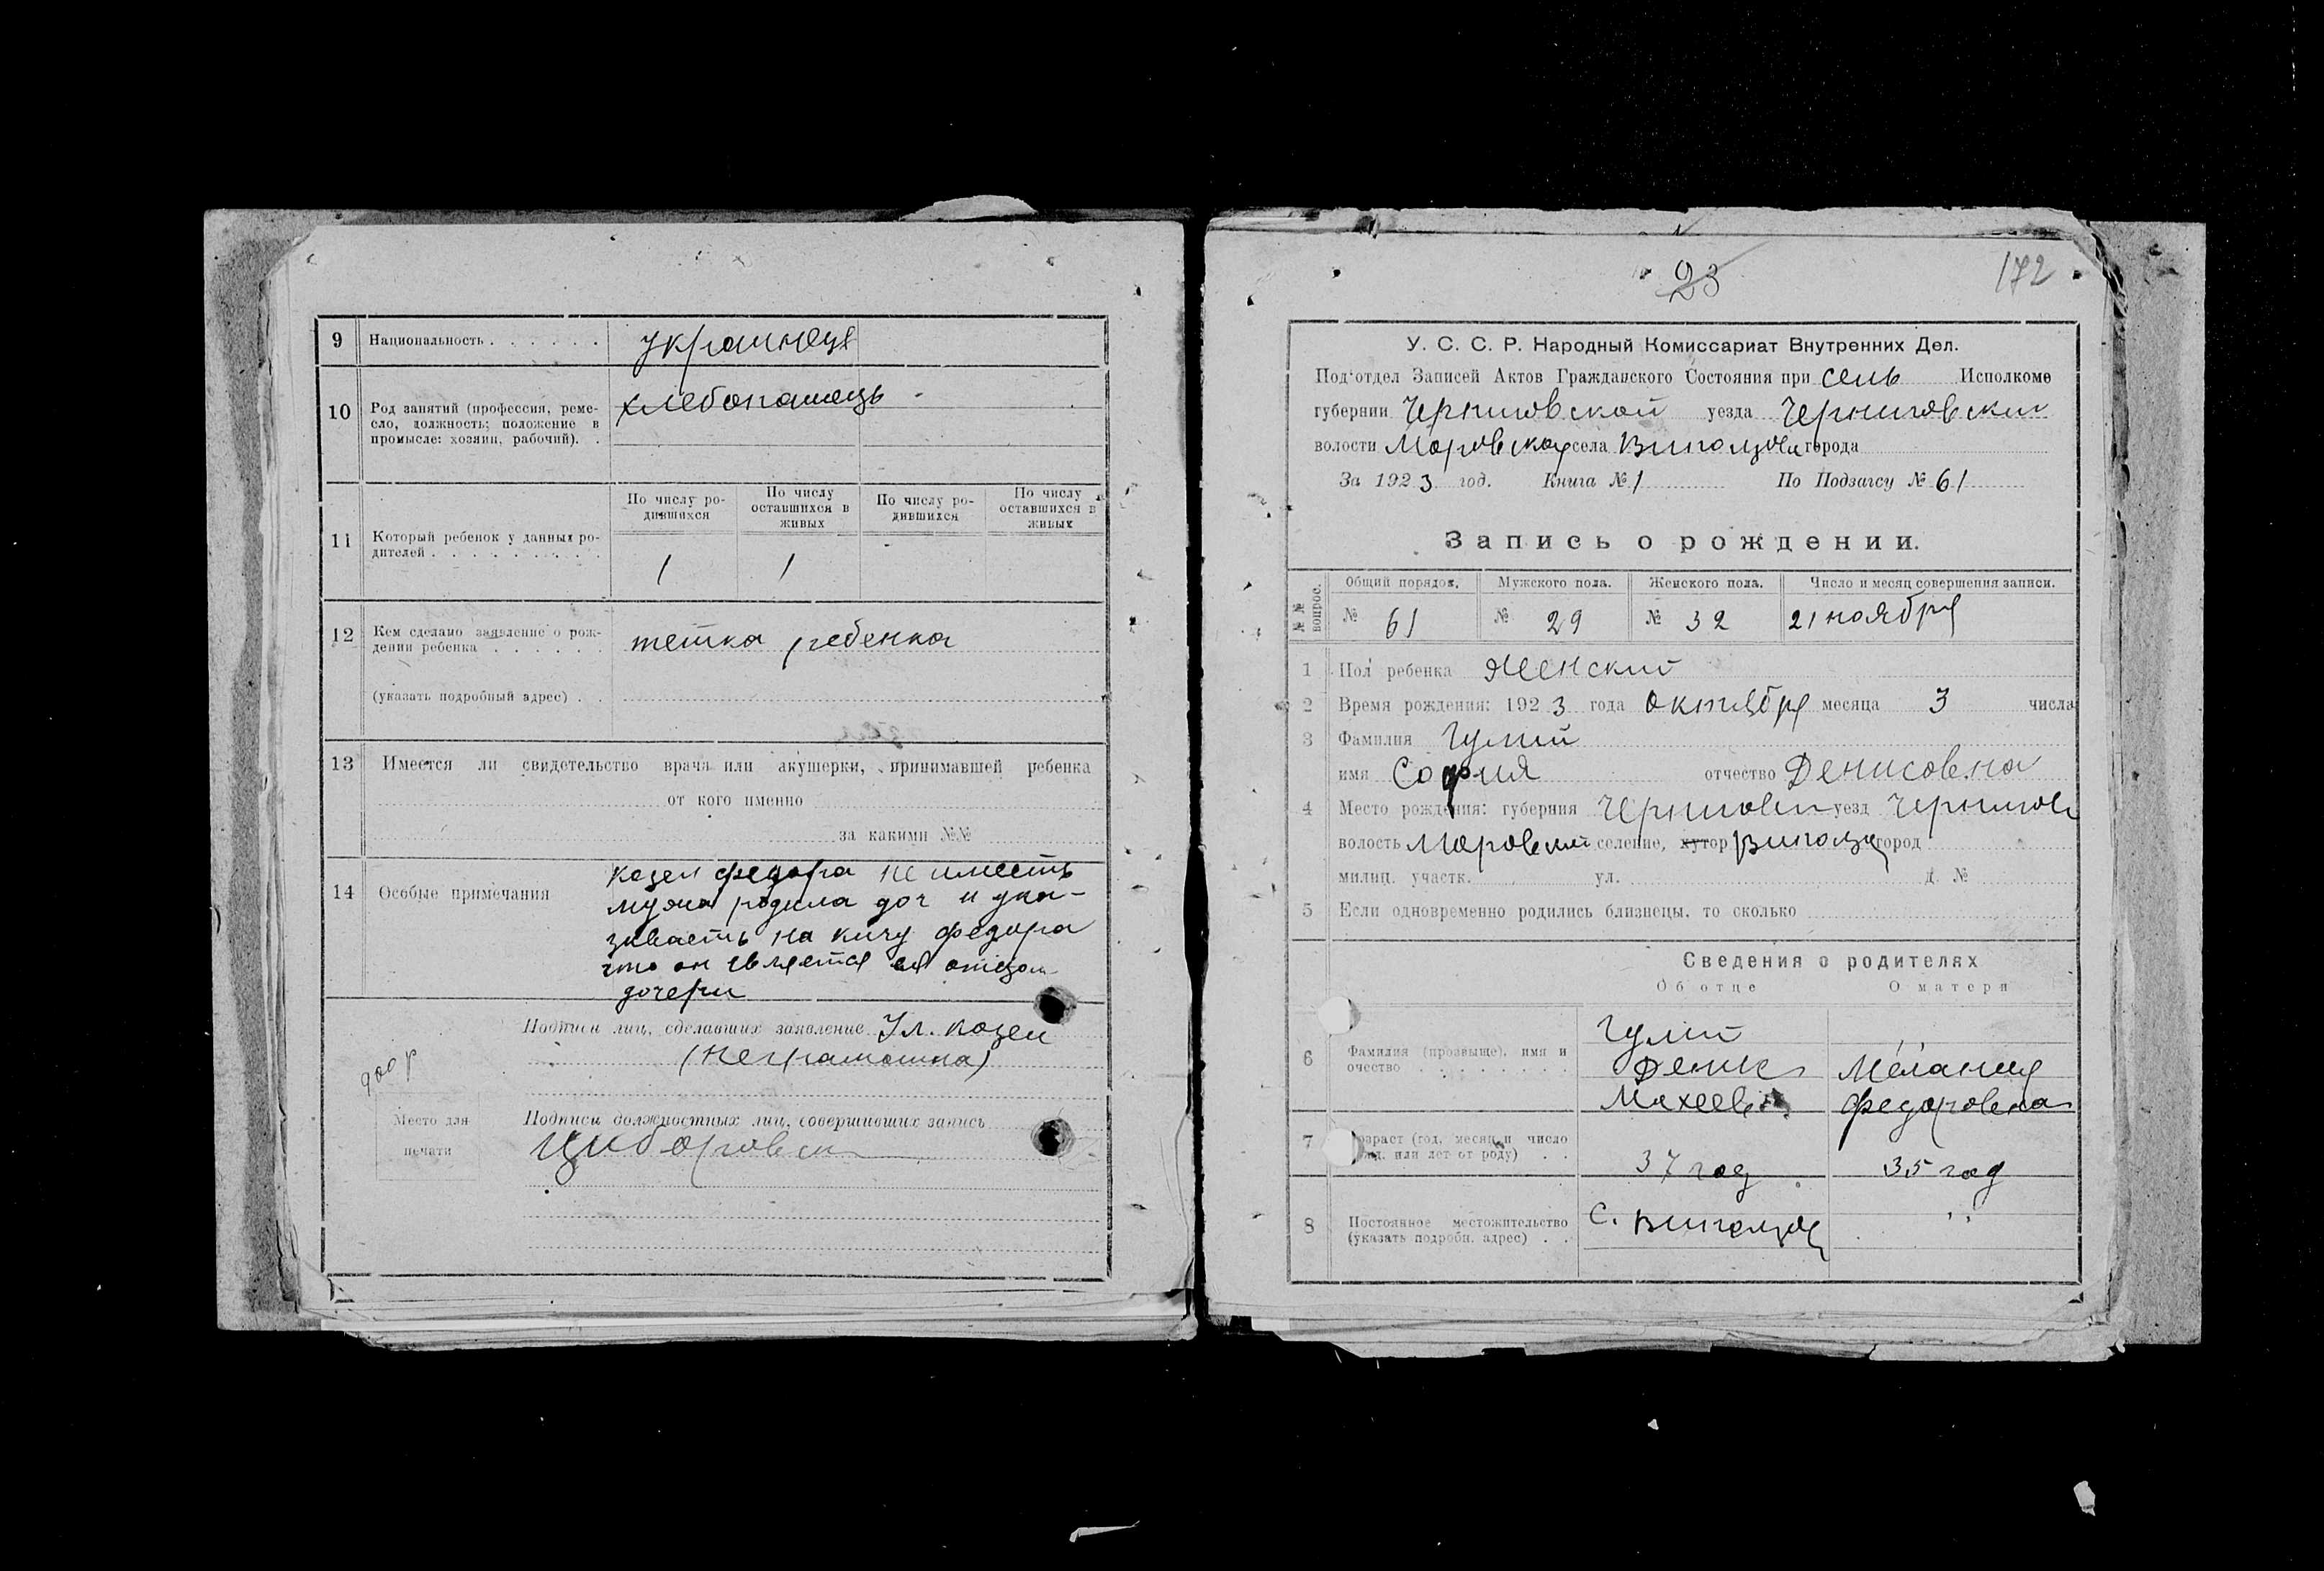 9 Национальность . . . . . . украинец
10 Род занятий (профессия, реме-
сло, должность; положение в
промысле: хозяин, рабочий). .
хлебопашець
11 Который ребенок у данных ро-
дителей . . . . . . . . . .
По числу ро-
дившихся
По числу
оставшихся в
живых
По числу ро-
дившихся
По числу
оставшихся в
живых
1 1
12 Кем сделано заявление о рож-
дении ребенка . . . . . .
тетка ребенка
(указать подробный адрес) . .
13 Имеется ли свидетельство врача или акушерки, принимавшей ребенка
от кого именно
за какими №№
14 Особые примечания
козел федора не имеетъ
мужа родила доч и ука-
зиваетъ на кичу федора
что он является ея отцом
дочери
Подписи лиц, сделавших заявление Ул. козел
(неграмотна)
900 р
Место для
печати
Подписи должностных лиц, совершивших запись
23
172
У. С. С. Р. Народный Комиссариат Внутренних Дел.
Под'отдел Записей Актов Гражданского Состояния при сель Исполкоме
губернии Черниговской уезда Черниговский
волости Моровской села города
За 1923 год. Книга № 1 По Подзагсу № 61
Запись о рождении.
№ № вопрос.
Общий порядок. Мужского пола. Женского пола. Число и месяц совершения записи.
№ 61 № 29 № 32 21 ноября
1 Пол ребенка Женский
2 Время рождения: 1923 года октября месяца 3 числа
3 Фамилия Гулий
имя София отчество Денисовна
4 Место рождения: губерния Черниговск уезд Чернигов
волость Моровский селение, хутор город
милиц. участк. ул. д. №
5 Если одновременно родились близнецы, то сколько
Сведения о родителях
Об отце О матери
6 Фамилия (прозвище), имя и
очество . . . . . . . .
Гулий
Денис
Михеев
Мелания
федоровна
7 Возраст (год, месяц и число
рожд. или лет от роду) . .
37 год 35 год
8 Постоянное местожительство
(указать подробн. адрес) . .
с.